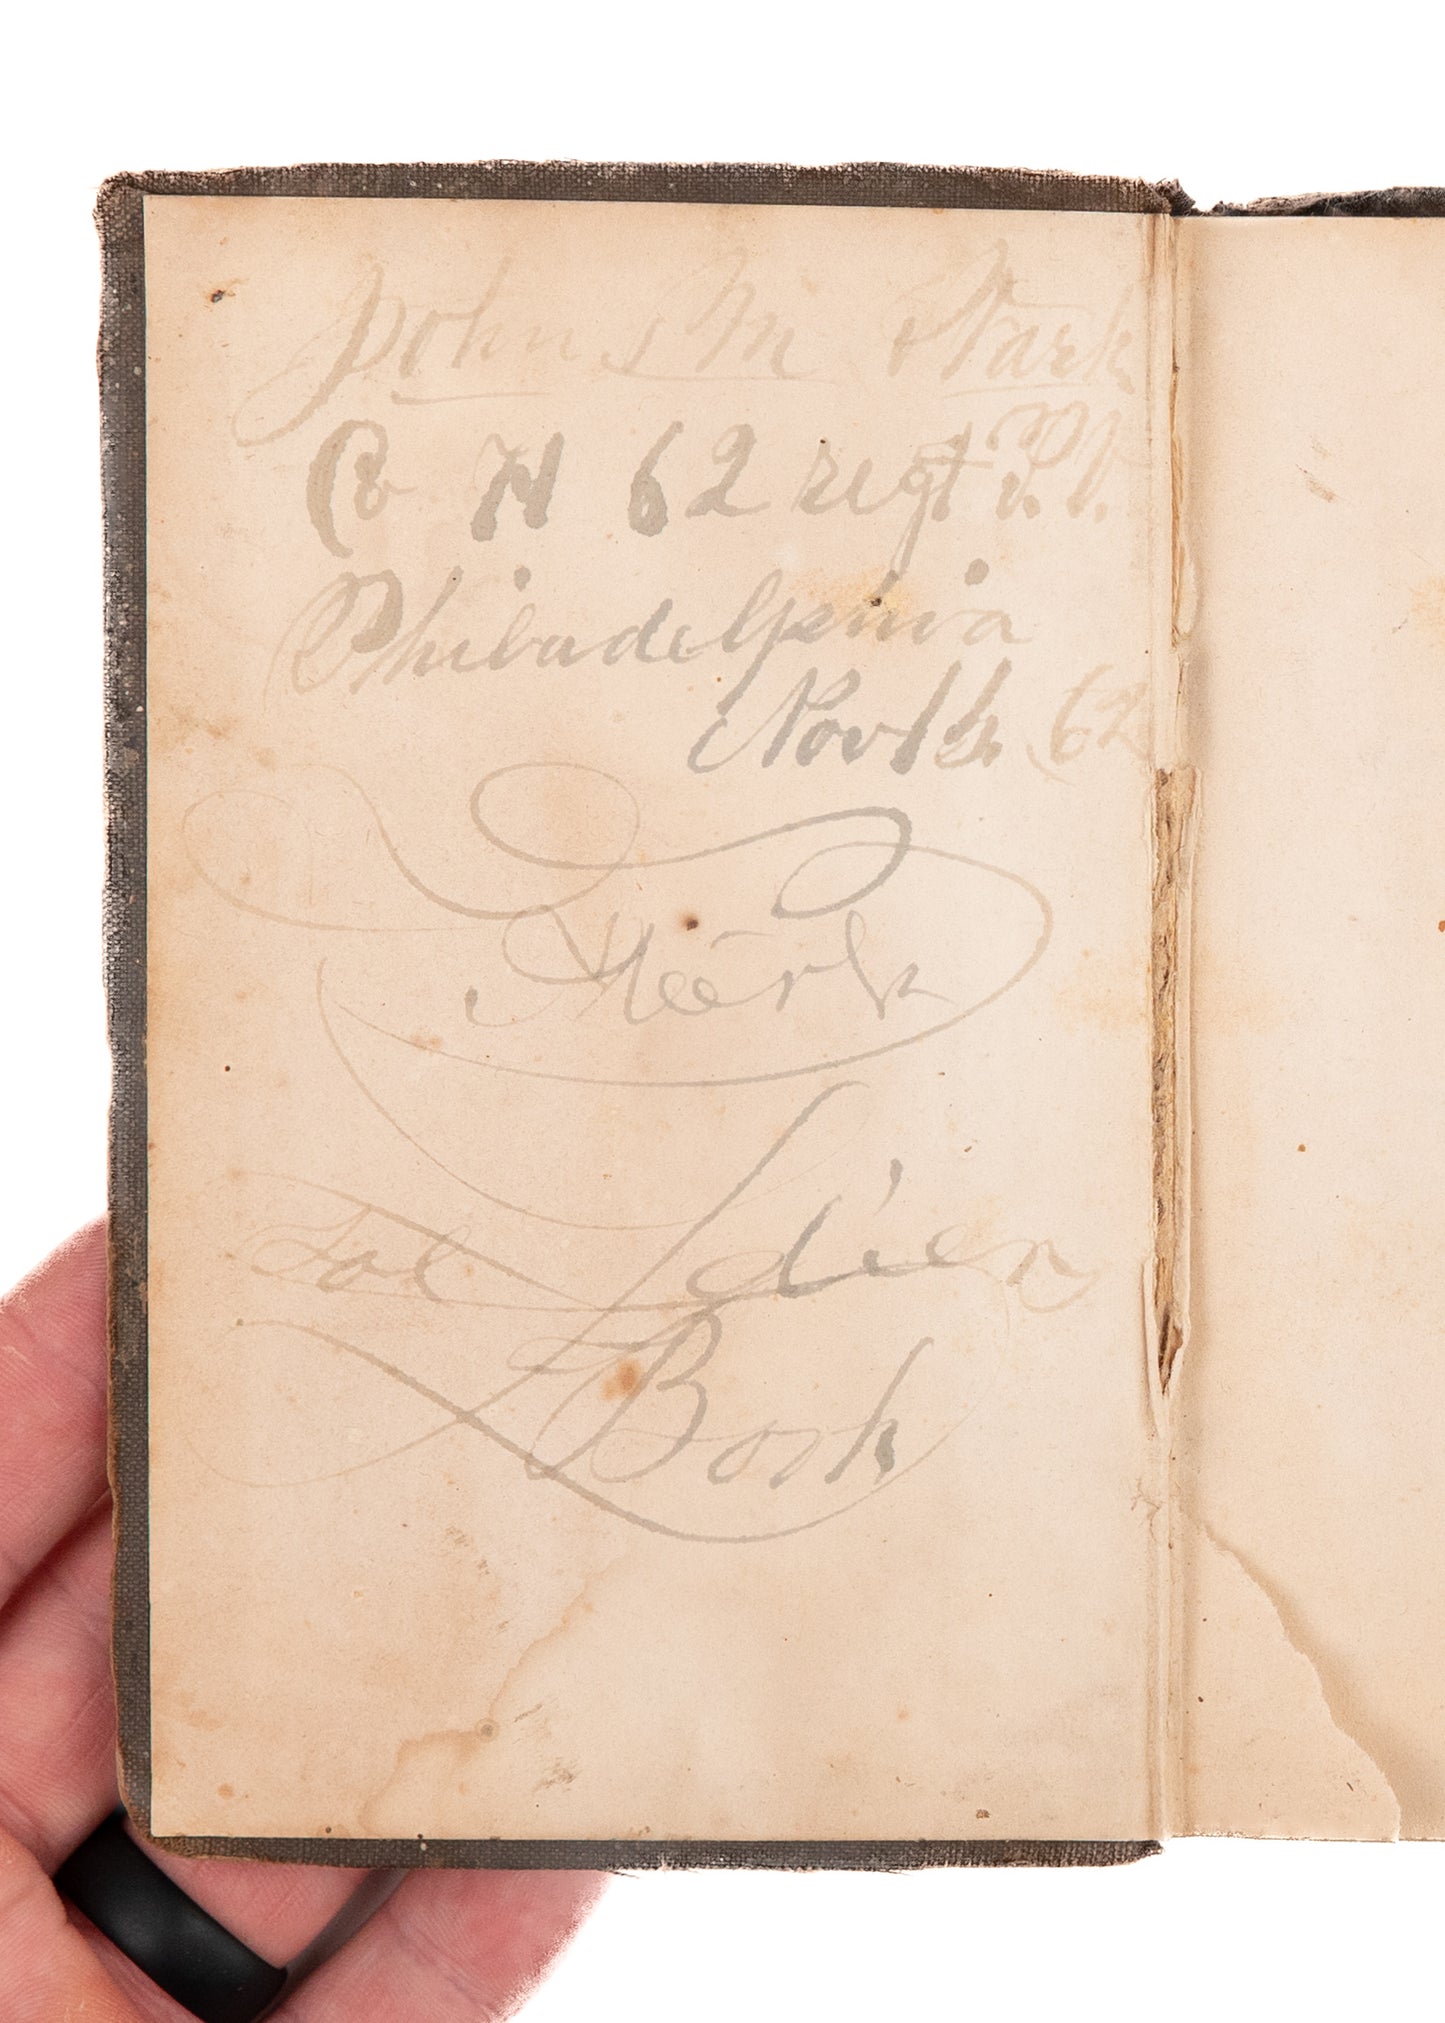 John M Stark
Co H 62 regt P.V.
Philadelphia
Nov 14 62
Stark
Sol dier
Book